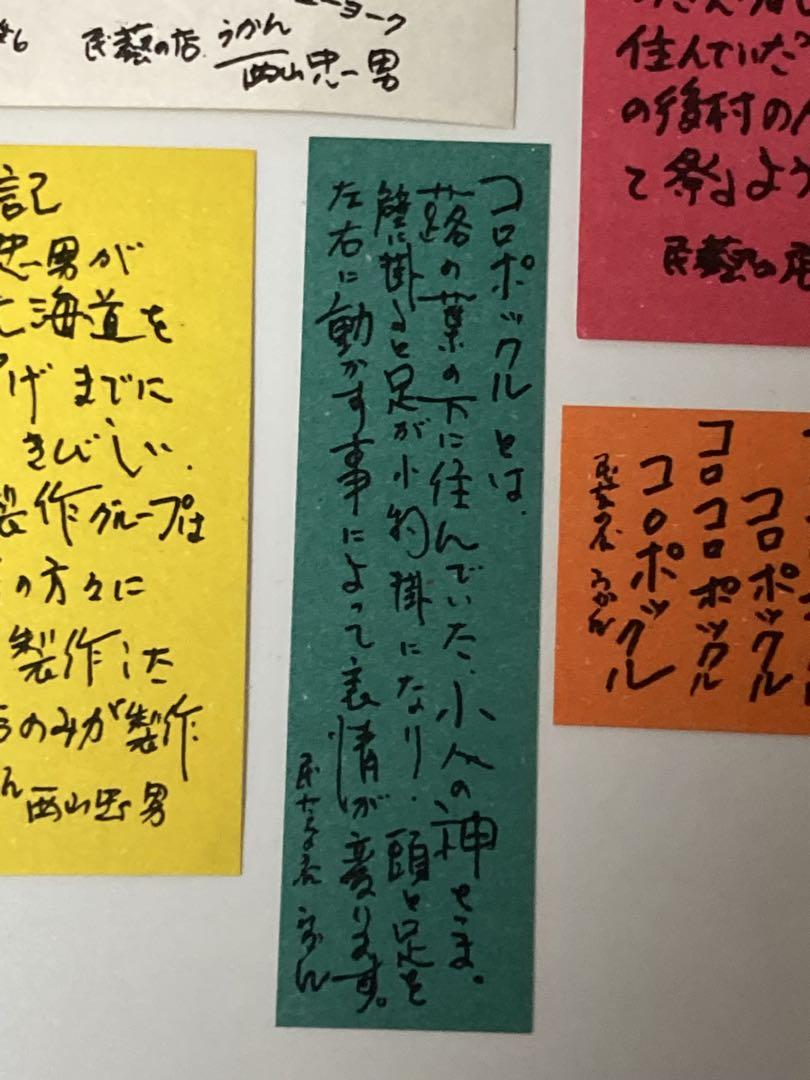 民藝の店 うかん
西山忠男
住んでいた
の後村の人
て祭るよう
民藝の店
記
忠男が
北海道を
げまでに
きびしい.
製作グループは
の方々に
製作した
のみが製作
西山忠男
コロポックルとは、
蕗の葉の下に住んでいた、小人の神さま。
壁に掛ると足が小物掛になり、頭と足を
左右に動かす事によって表情が変ります。
民芸の店 うかん
コロポックル
コロコロポックル
コロポックル
民芸の店 うかん